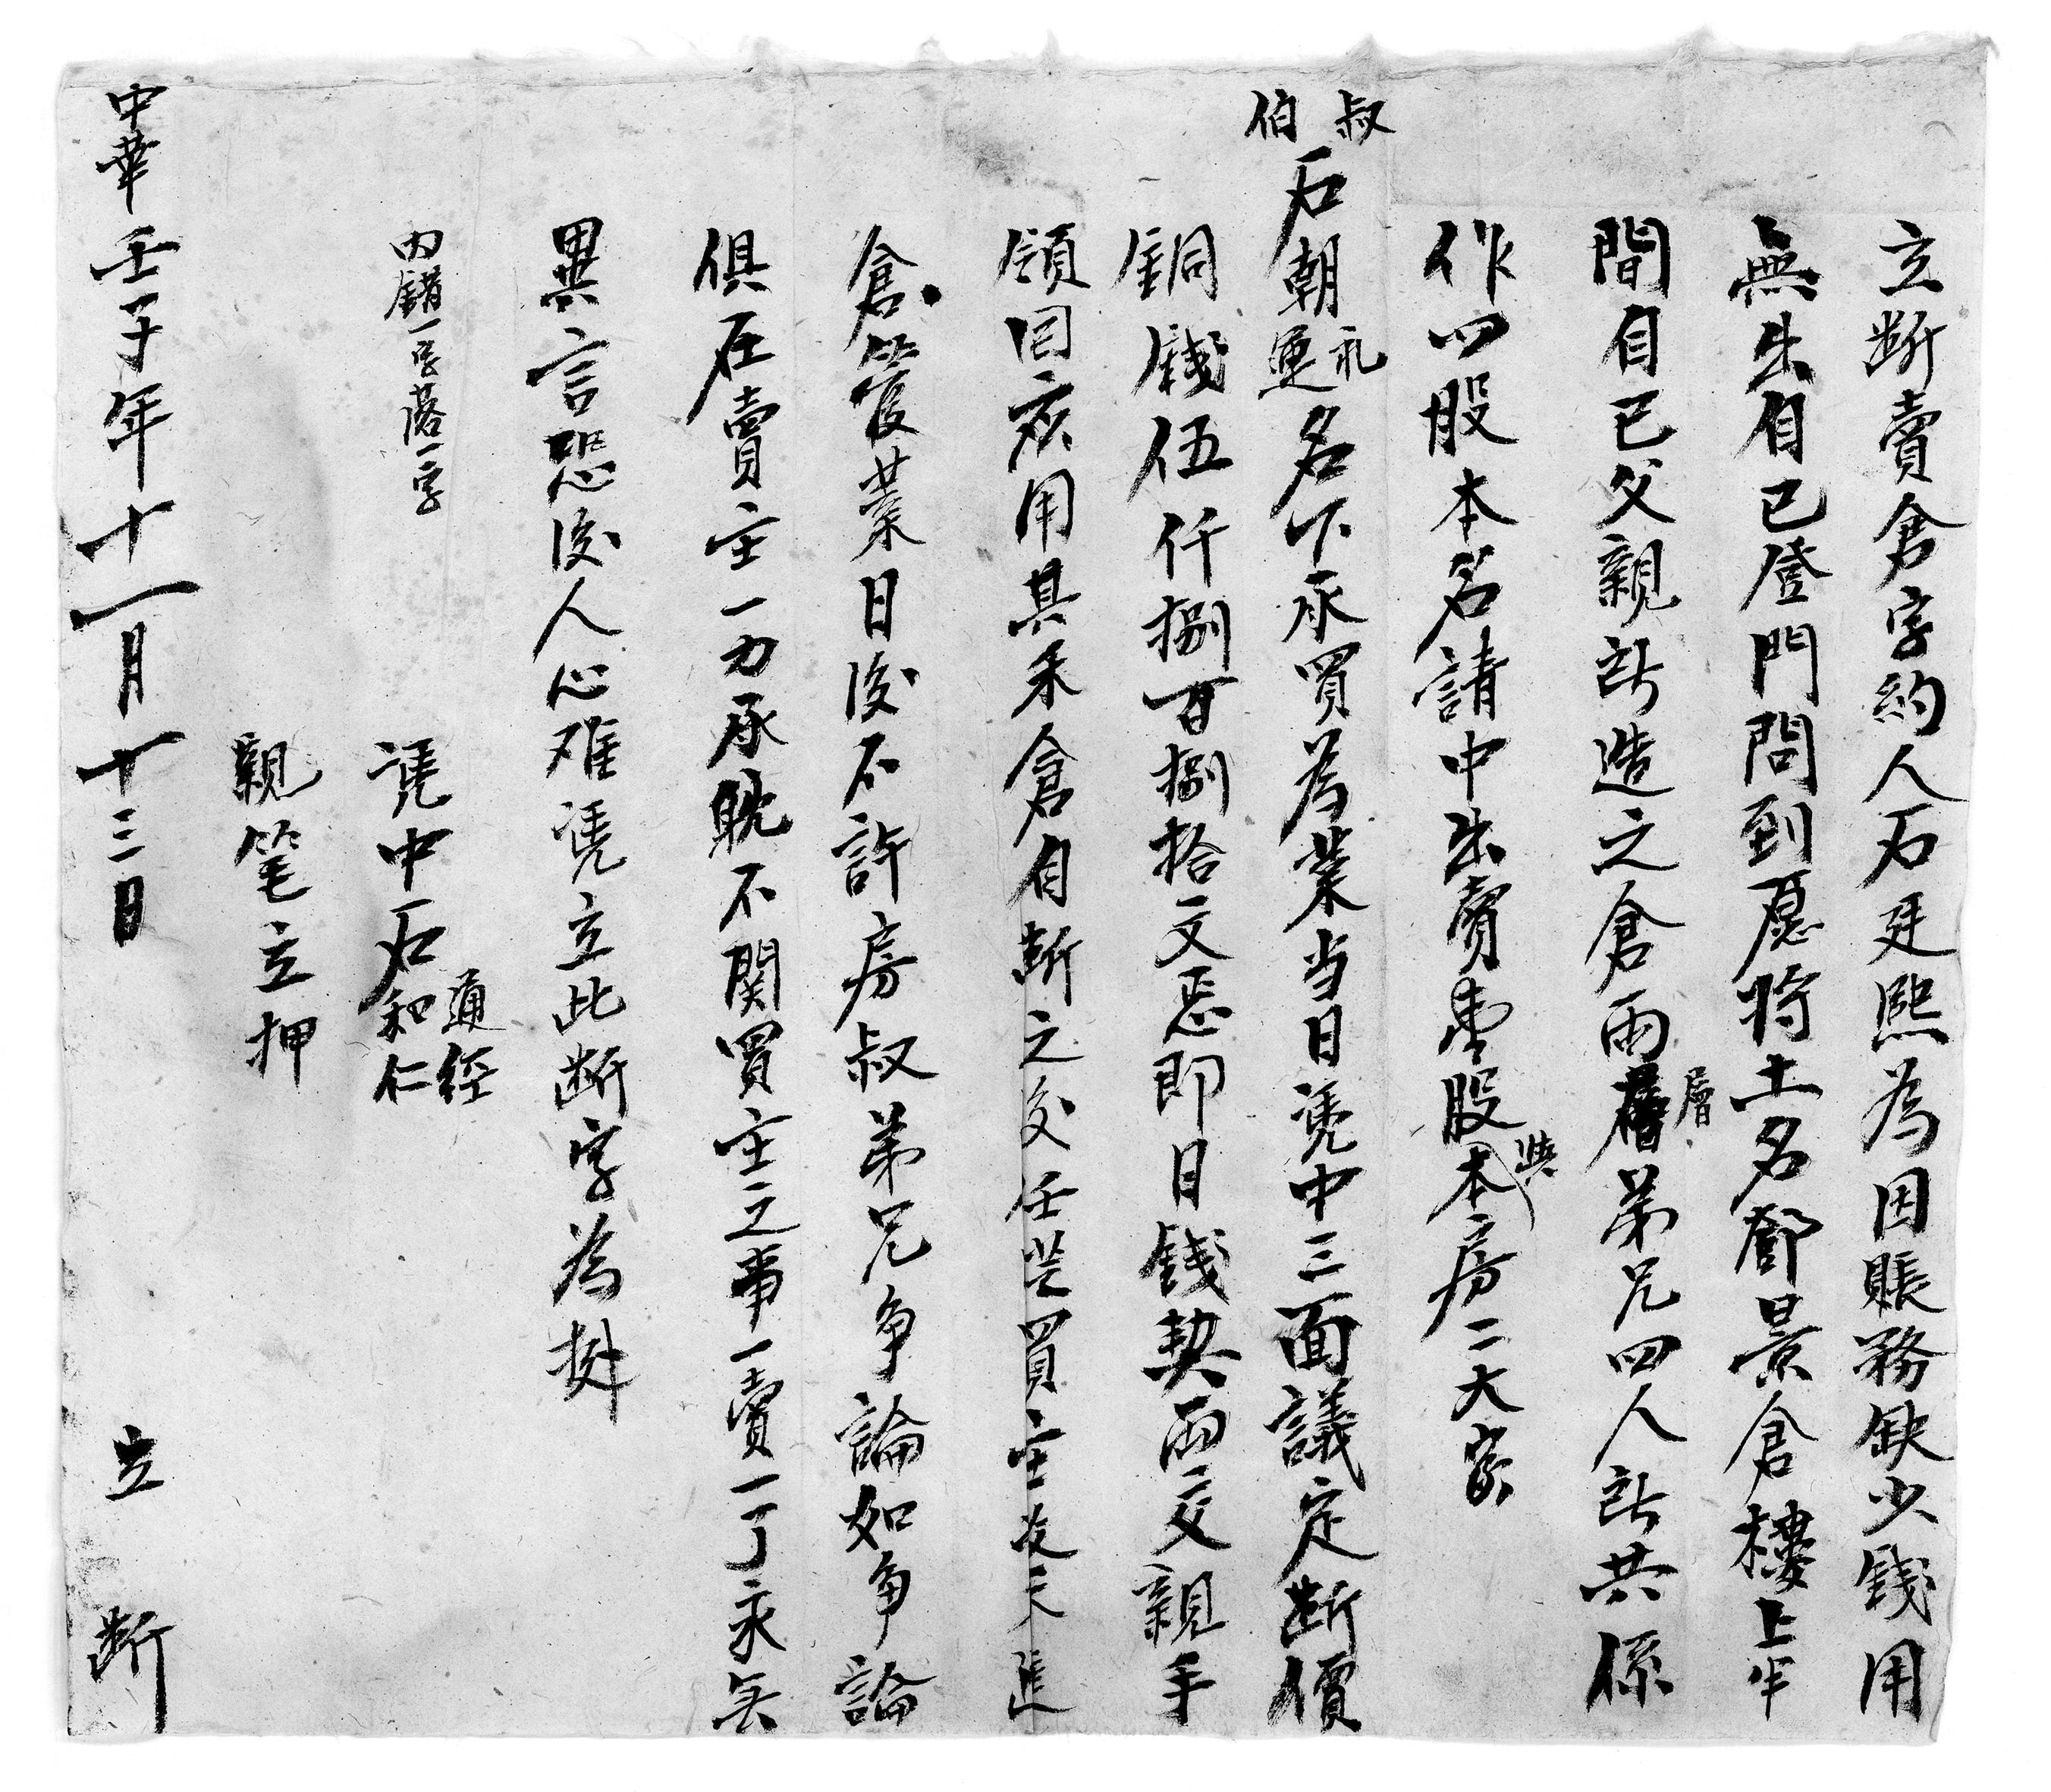 立断賣倉字約人石廷熙為因賬務缺少錢用
無出自己登門問到愿將土名鄧景倉樓上半
間自己父親所造之倉両層弟兄四人所共係
作四股本名請中出賣壹股與本房二大家
叔伯石朝礼運名下承買為業当日凴中三面議定断價
銅錢伍仟捌百捌拾文恁即日錢契両交親手
領回家用其禾倉自断之後任從買主
倉管業日後不許房叔弟兄争論如争論
俱在賣主一力承躭不関買主之事一賣一了永無
異言恐後人心难凴立此断字為挗
内錯一字落一字
凴中石通経和仁
親笔立押
中華壬子年十一月十三日 立断